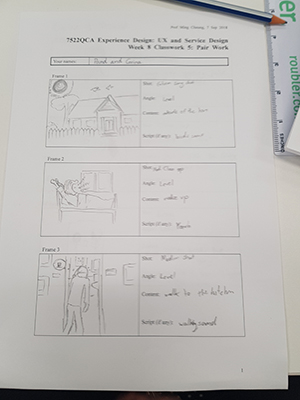 7522QCA Experience Design: UX and Service Design
Week 8 Classwork 5: Pair Work
Your names: and
Frame 1
Shot: long shot
Angle: Level
Content: of the house
Script (if any):
Frame 2
Shot: Close up
Angle: Level
Content: wake up
Script (if any):
Frame 3
Shot: Medium shot
Angle: Level
Content: walk to the kitchen
Script (if any): walking sound
1